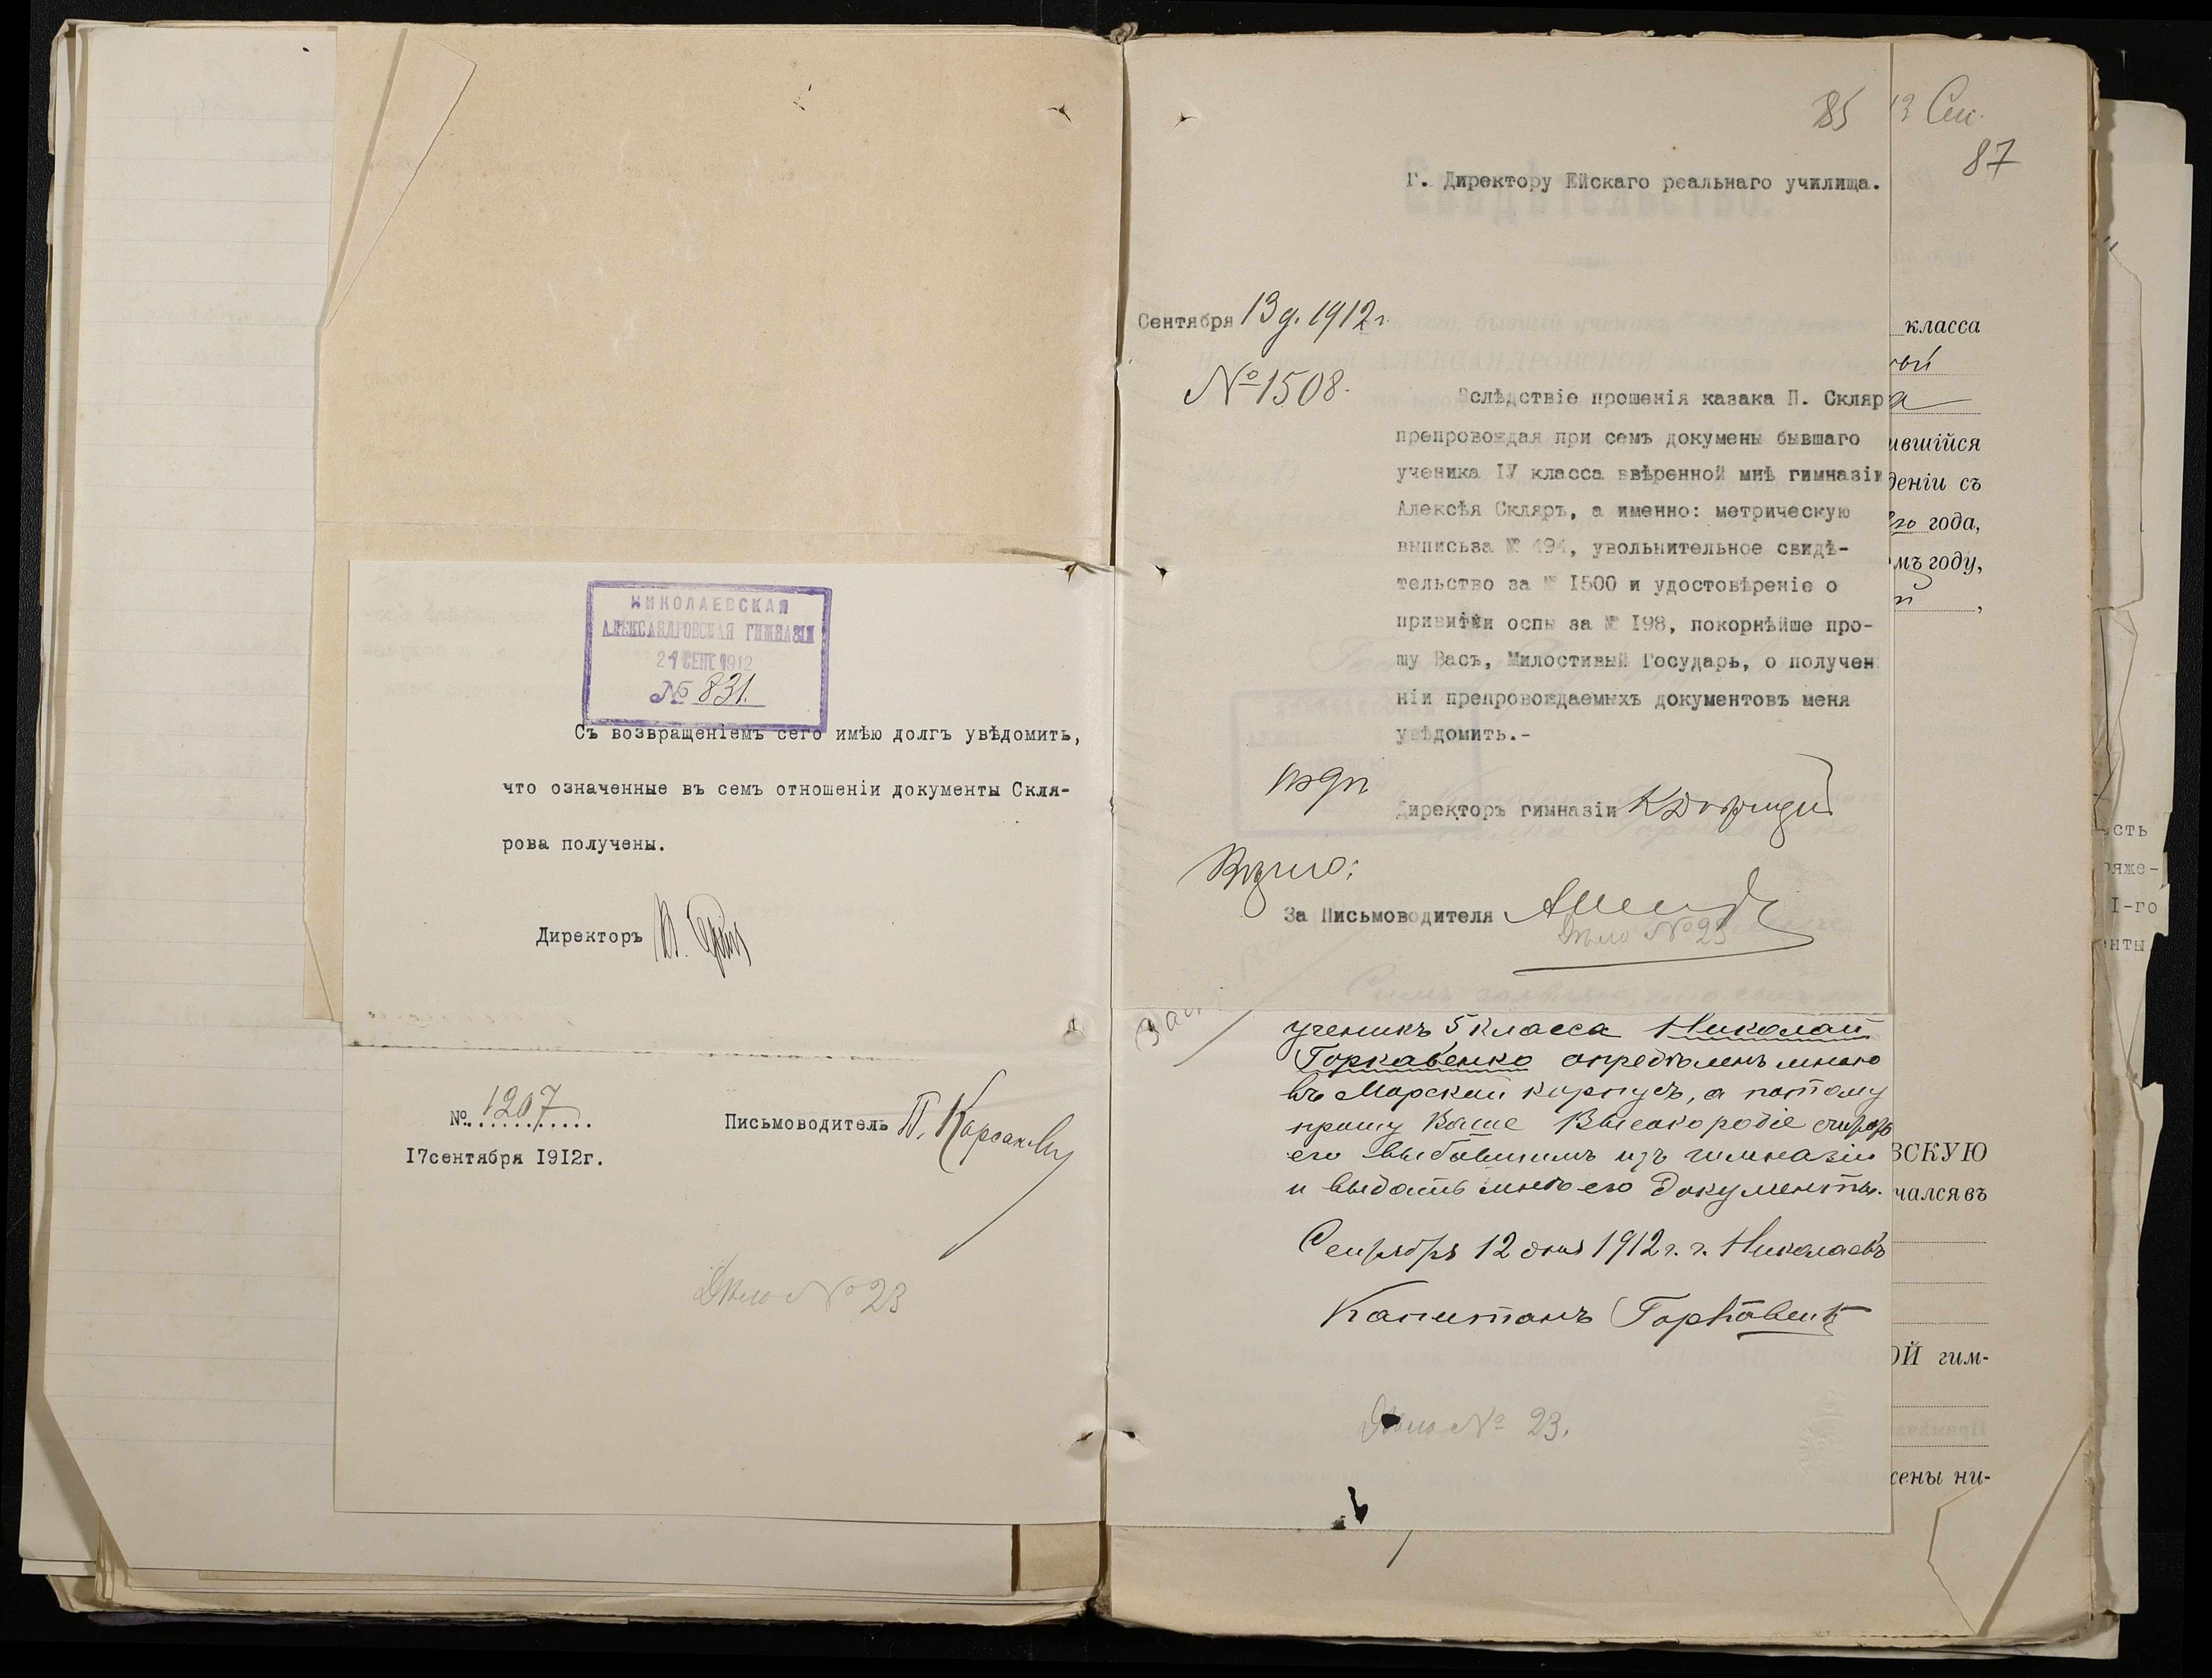 НИКОЛАЕВСКАЯ
АЛЕКСАНДРОВСКАЯ ГИМНАЗІЯ
21 СЕНТ. 1912
№ 831.
Съ возвращеніемъ сего имѣю долгъ увѣдомить,
что означенные въ семъ отношеніи документы Скля-
рова получены.
Директоръ
№ 1207
17сентября 1912г.
Письмоводитель П. Корсаковъ
Дѣло № 23
85
13 Сен.
87
Г. Директору Ейскаго реальнаго училища.
Сентября 13 д. 1912 г.
№ 1508.
Вслѣдствіе прошенія казака П. Скляр
препровождая при семъ докумены бывшаго
ученика IV класса ввѣренной мнѣ гимназіи
Алексѣя Скляръ, а именно: метрическую
выписьза № 494, увольнительное свидѣ-
тельство за № I500 и удостовѣреніе о
привитіи оспы за № I98, покорнѣйше про-
шу Васъ, Милостивый Государь, о получен
ніи препровождаемыхъ документовъ меня
увѣдомить.-
Директоръ гимназіи
Вѣрно:
За Письмоводителя
Дѣло № 23
ученикъ 5 класса Николай
Горкавенко опредѣленъ мною
въ Морской корпусъ, а потому
прошу Ваше Высокородіе считать
его выбывшимъ изъ гимназіи
и выдать мнѣ его документы.
Сентября 12 дня 1912 г. г. Николаевъ
Капитанъ Горкавенко
Дѣло № 23.
класса
ившійся
деніи съ
го года,
мъ году,
ВСКУЮ
чался въ
ОЙ гим-
сены ни-
сть
ряже-
I-го
нты